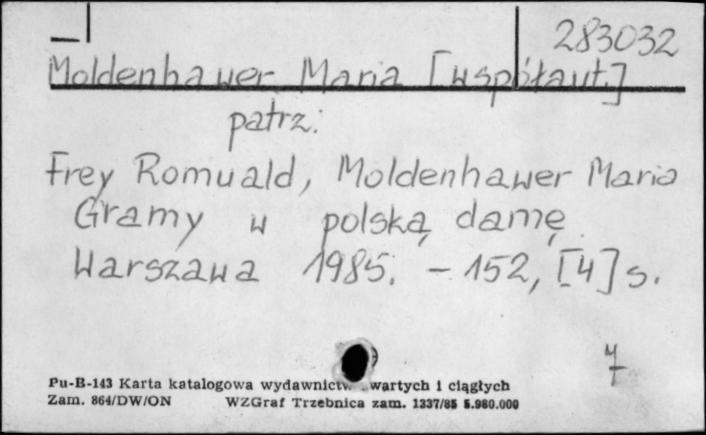 283032
Moldenhawer Maria [współaut.]
patrz:
Frey Romuald, Moldenhawer Maria
Gramy w polską damę
Warszawa 1985. - 152, [4] s.
Pu-B-143 Karta katalogowa wydawnictw zwartych i ciągłych
Zam. 864/DW/ON WZGraf Trzebnica zam. 1337/85 5.980.000